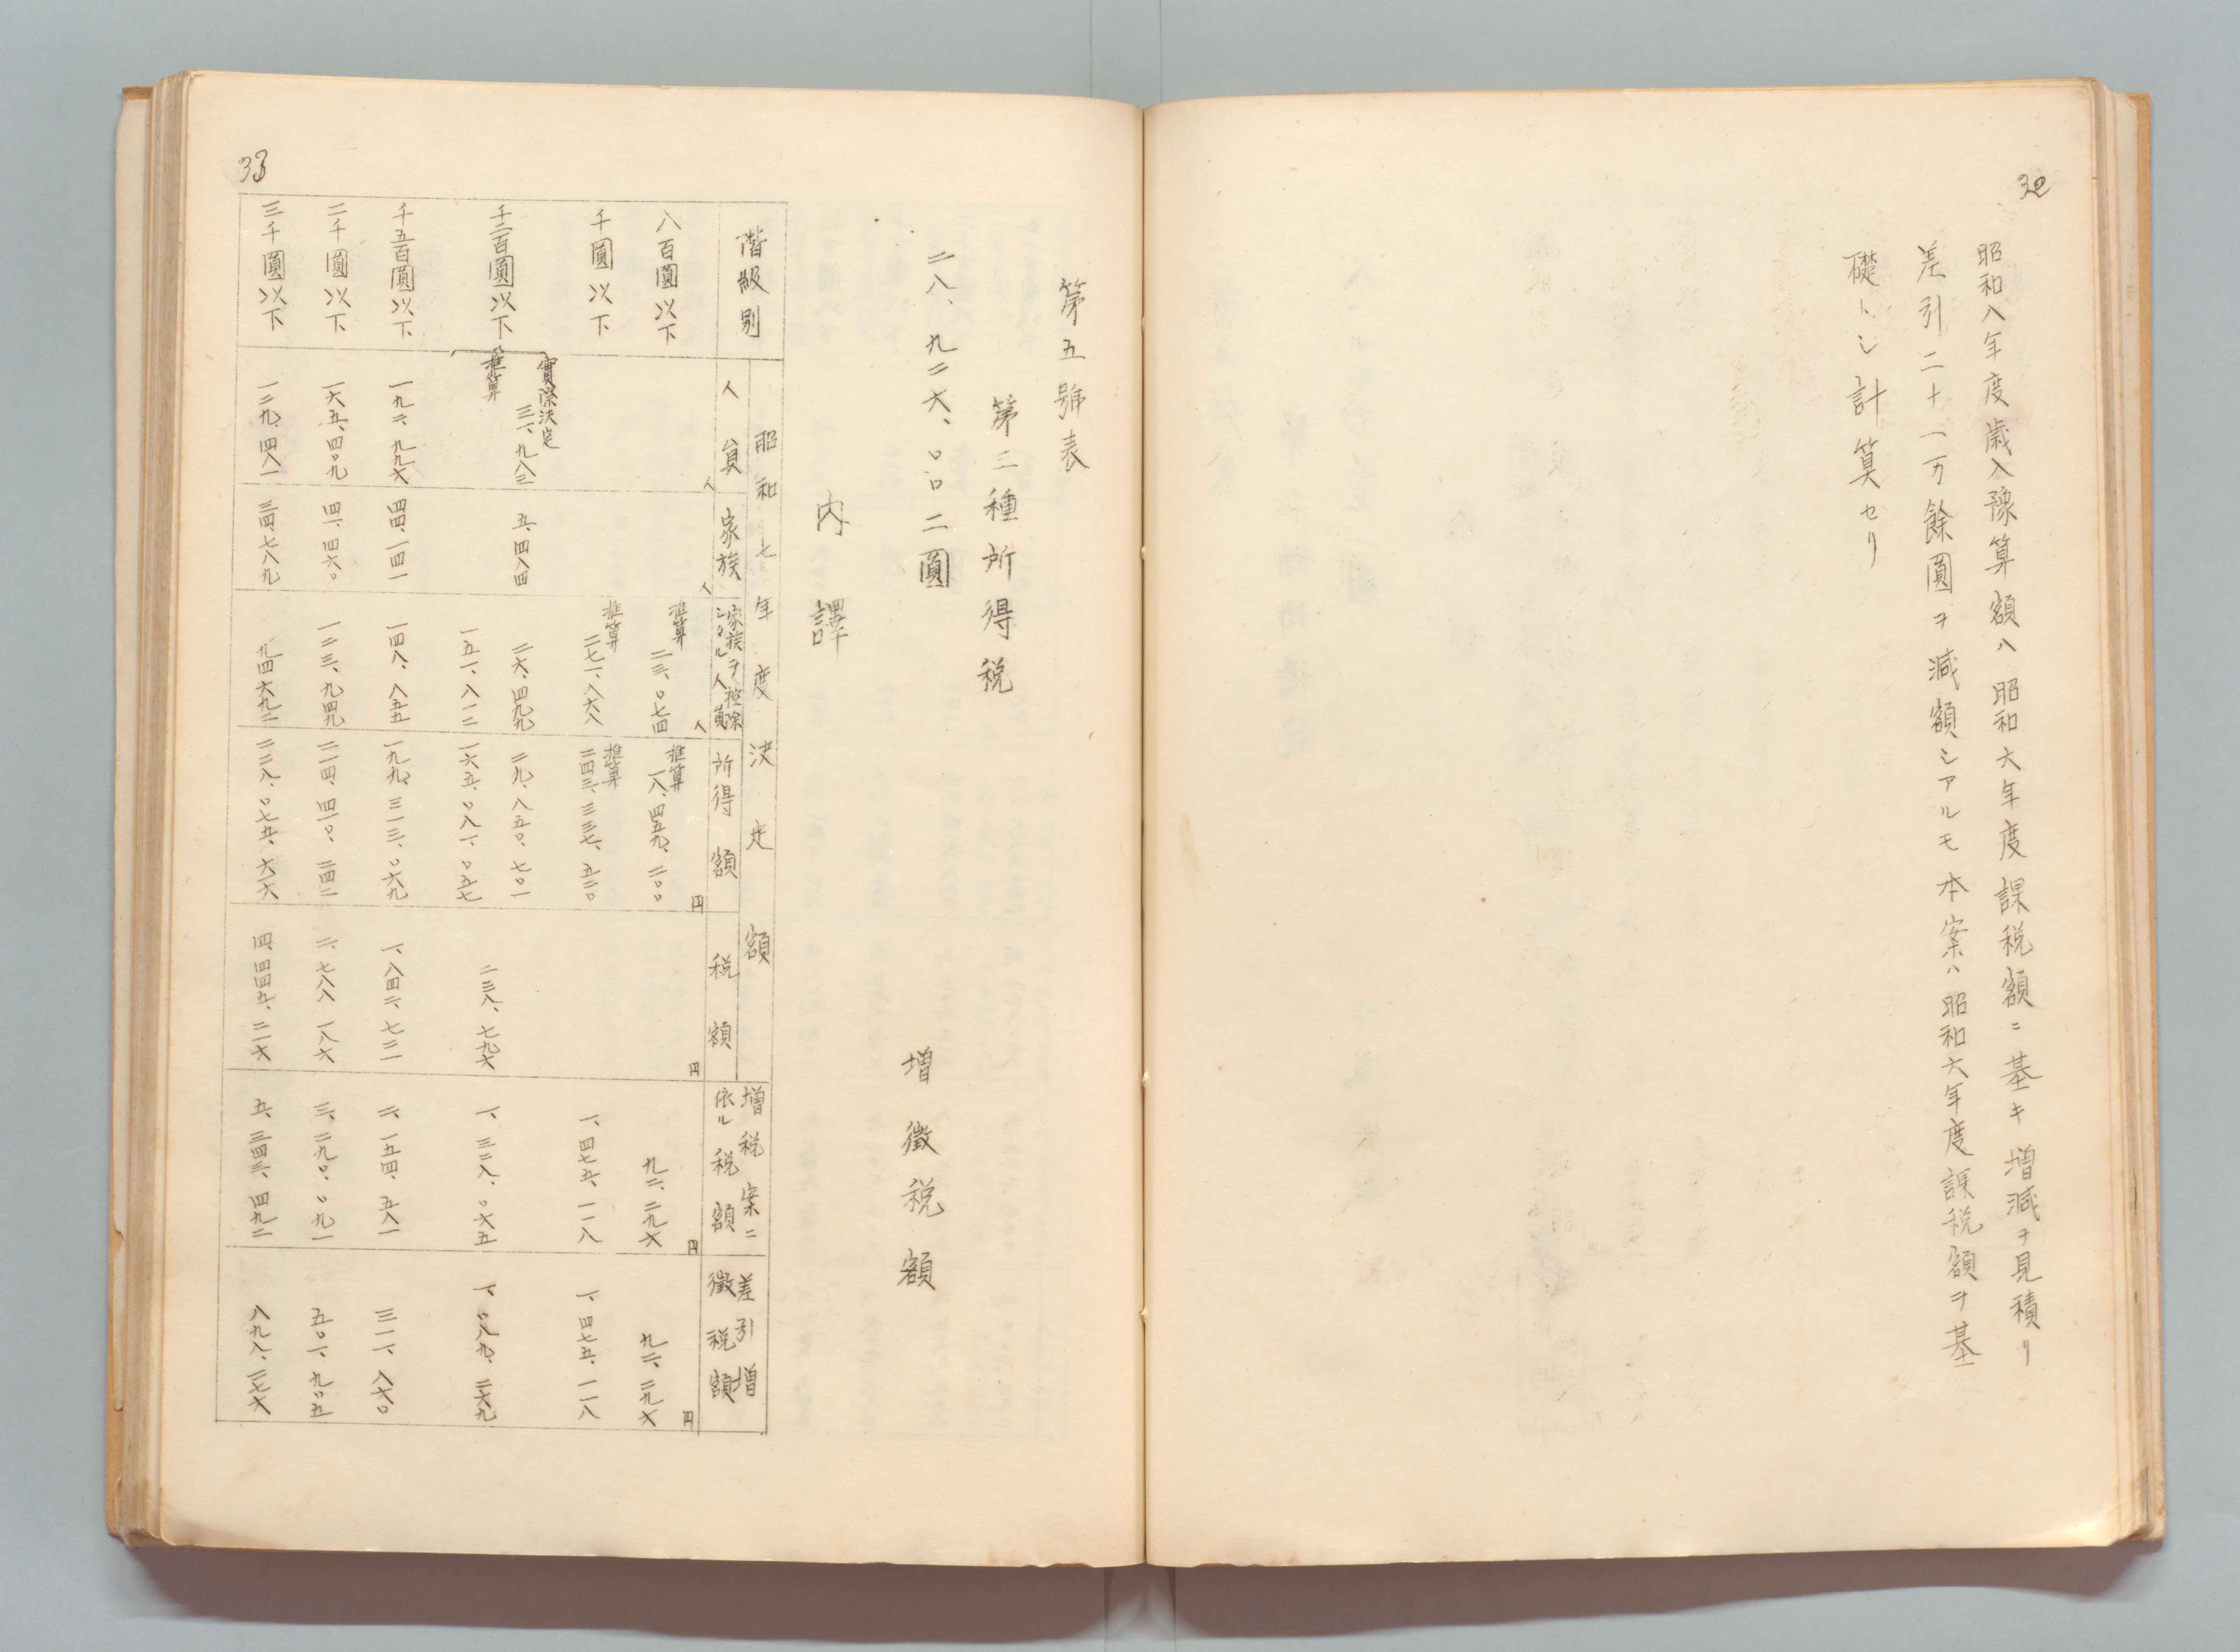 32
昭和八年度歳入豫算額ハ昭和六年度課税額ニ基キ増減ヲ見積リ
差引二十一万餘圓ヲ減額シアルモ本案ハ昭和六年度課税額ヲ基
礎トシ計算セリ
33
第五號表
第二種所得税
二八、九二六、〇〇二圓
増徴税額
内譯
階級別
昭和七年度決定額
人員
人
家族
人
家族ヲ控除シタル人員
人
所得額
円
税額
円
増税案ニ依ル税額
円
差引増徴税額
円
八百圓以下
推算
二三、〇七四
推算
一八、四五九、二〇〇
九二、二九六
九二、二九六
千圓以下
推算
二七一、八六八
推算
二四三、三三七、五二〇
一、四七五、一一八
一、四七五、一一八
千二百圓以下
實際決定
三一、九八三
五、四八四
二六、四九九
二九、八五〇、七〇一
推算
一五一、八一二
一六五、〇八一、〇五七
二三八、七九六
一、三二八、〇六五
一、〇八九、二六九
千五百圓以下
一九二、九九六
四四、一四一
一四八、八五五
一九九、三一三、〇六九
一、八四二、七二一
二、一五四、五八一
三一一、八六〇
二千圓以下
一六五、四〇九
四一、四六〇
一二三、九四九
二一四、四一〇、二四二
二、七八八、一八六
三、二九〇、〇九一
五〇一、九〇五
三千圓以下
一二九、四八一
三四、七八九
九四、六九二
二二八、〇七五、六一六
四、四四五、二一六
五、三四三、四九二
八九八、二七六